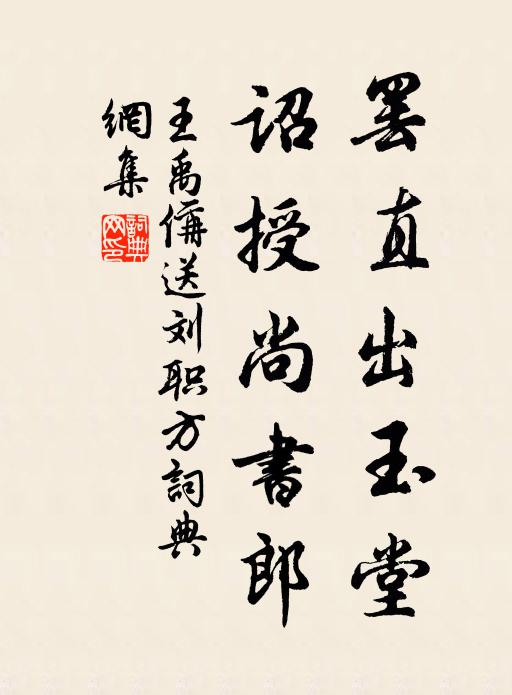 罢直出玉堂
詔授尚書郎
王禹偁送刘职方詞典
網集
詞典
网印